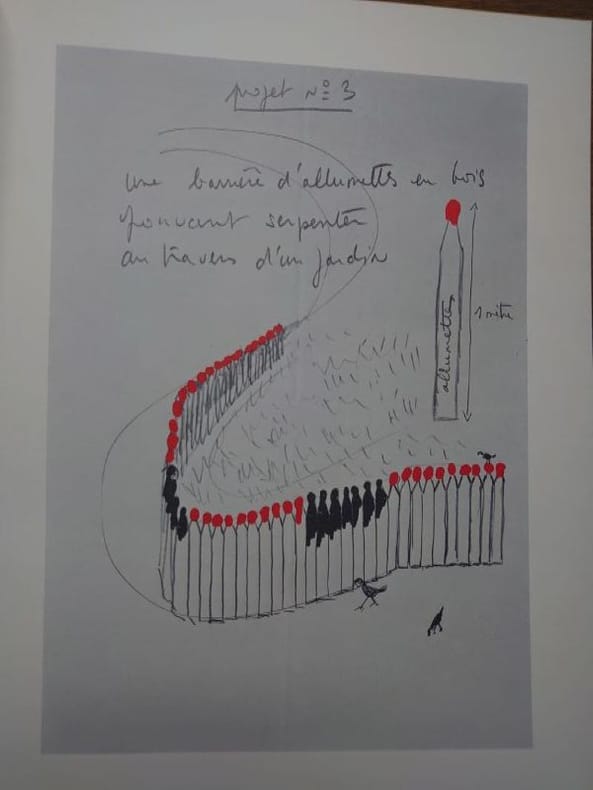 projet Nº 3
une barrière d'allumettes en bois
pouvant serpenter
au travers d'un jardin
1 mètre
allumettes